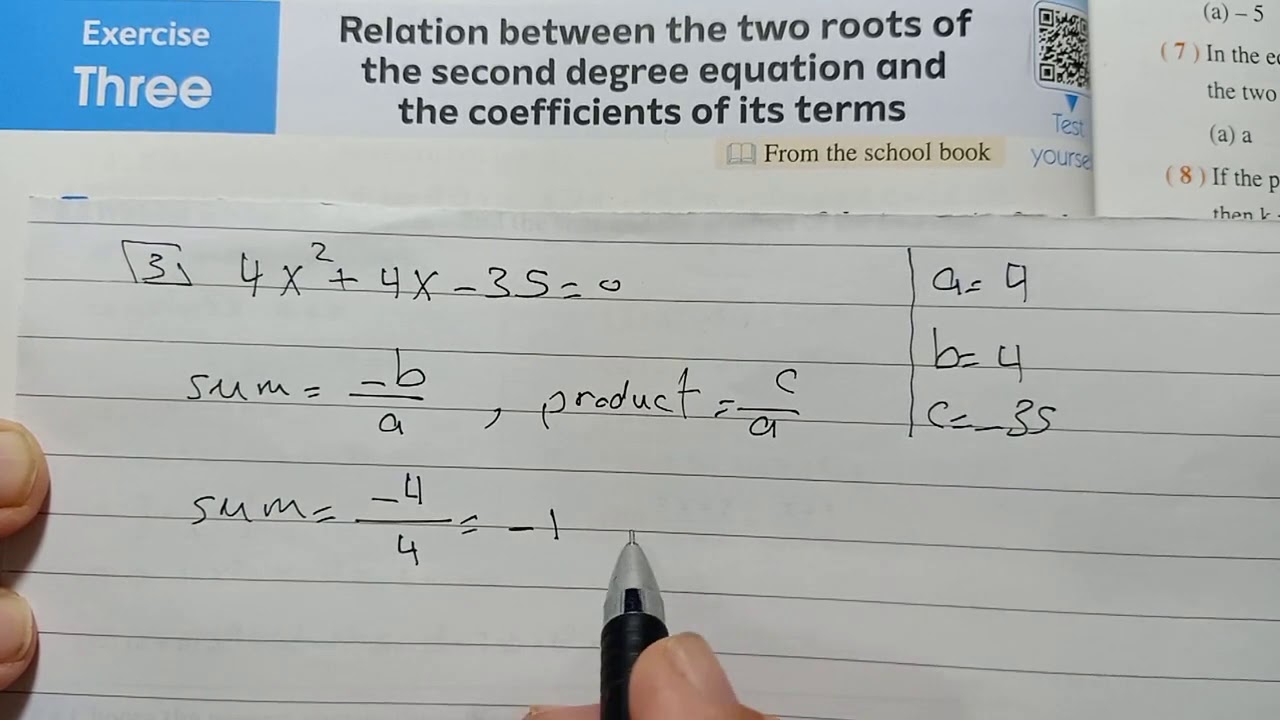 Exercise
Three
Relation between the two roots of
the second degree equation and
the coefficients of its terms
From the school book
Test
yourse
(a) – 5
(7) In the e
the two
(a) a
(8) If the p
then k
3 4x² + 4x - 35 = 0
sum = -b/a , product = c/a
sum = -4/4 = -1
a = 4
b = 4
c = -35